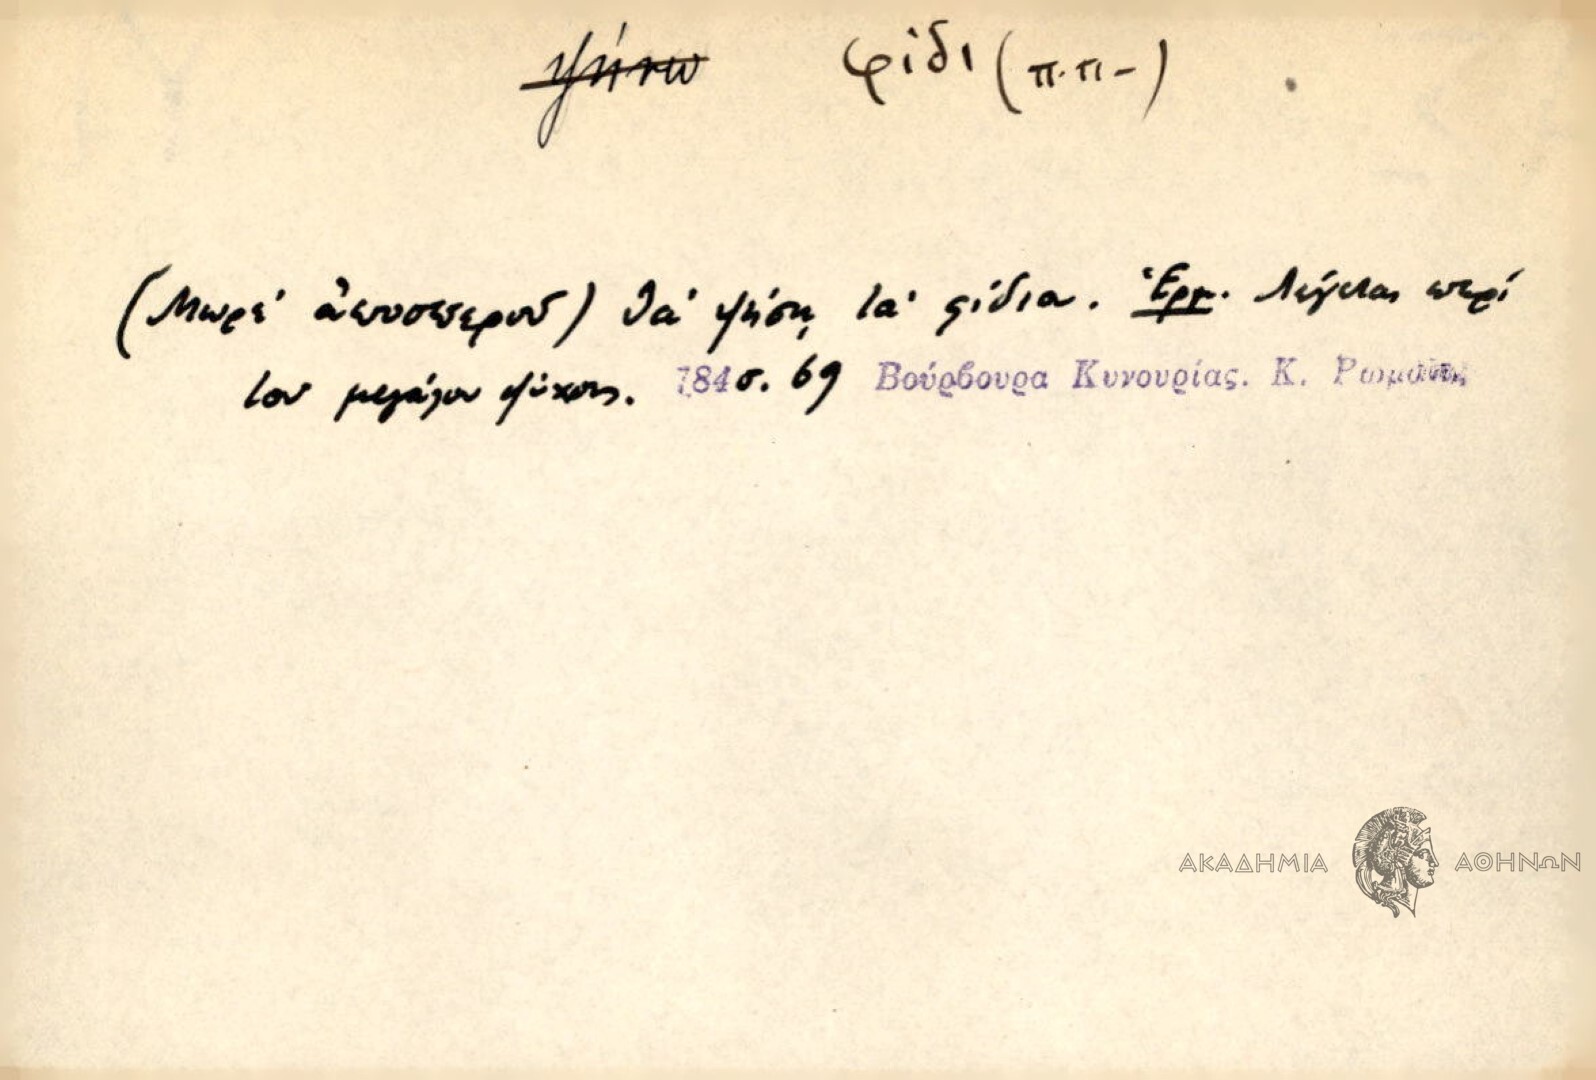 ψήνω φίδι (π.π-)
(Μωρέ ἀποσπεροῦ) θά ψήσῃ τά φίδια. Ἑρμ. Λέγεται περί
του μεγάλου ψύχους. 784 σ. 69 Βούρβουρα Κυνουρίας. Κ. Ρωμαίος
ΑΚΑΔΗΜΙΑ ΑΘΗΝΩΝ